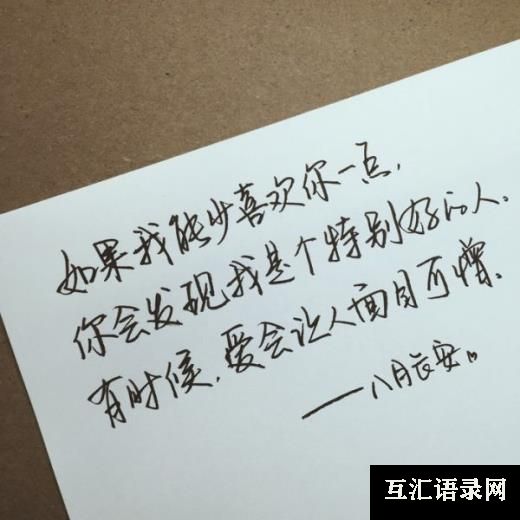 如果我能少喜欢你一点，
你会发现我是个特别好的人。
有时候，爱会让人面目可憎。
——八月长安。
互汇语录网